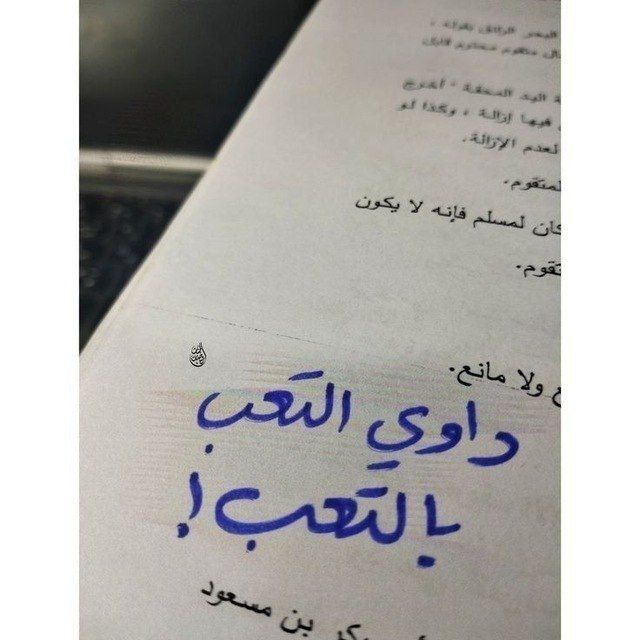 البحر الرائق بقوله ،
مال متقوم محترم قابل
اليد المحقة " أخرج
فيها إزالة ، وكذا لو
لعدم الإزالة.
لمتقوم.
كان لمسلم فإنه لا يكون
متقوم.
ولا مانع.
داوي التعب
بالتعب!
بكر بن مسعود